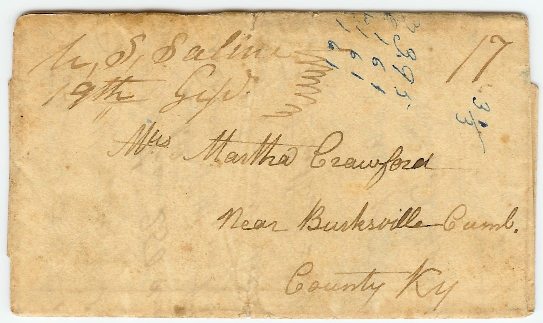 U, S, Saline
19th Sept. 17
Mrs Martha Crawford
Near Burksville Cumb.
County Ky